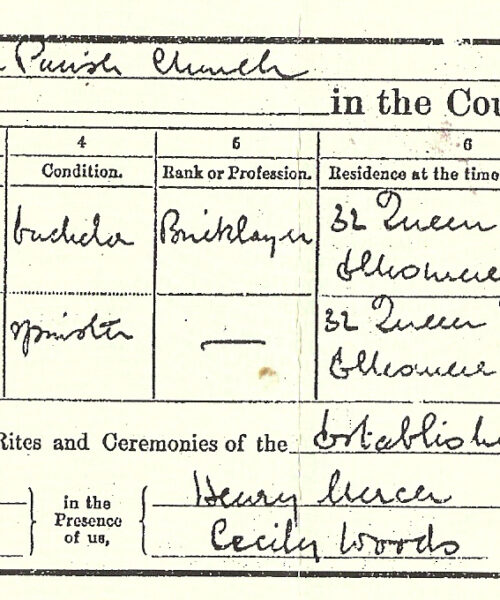 Parish Church
in the Cou
4 5 6
Condition. Rank or Profession. Residence at the time
bachelor Bricklayer 32 Queen
spinster — 32 Queen
Rites and Ceremonies of the Establishe
in the
Presence
of us,
Henry Mercer
Cecily Woods